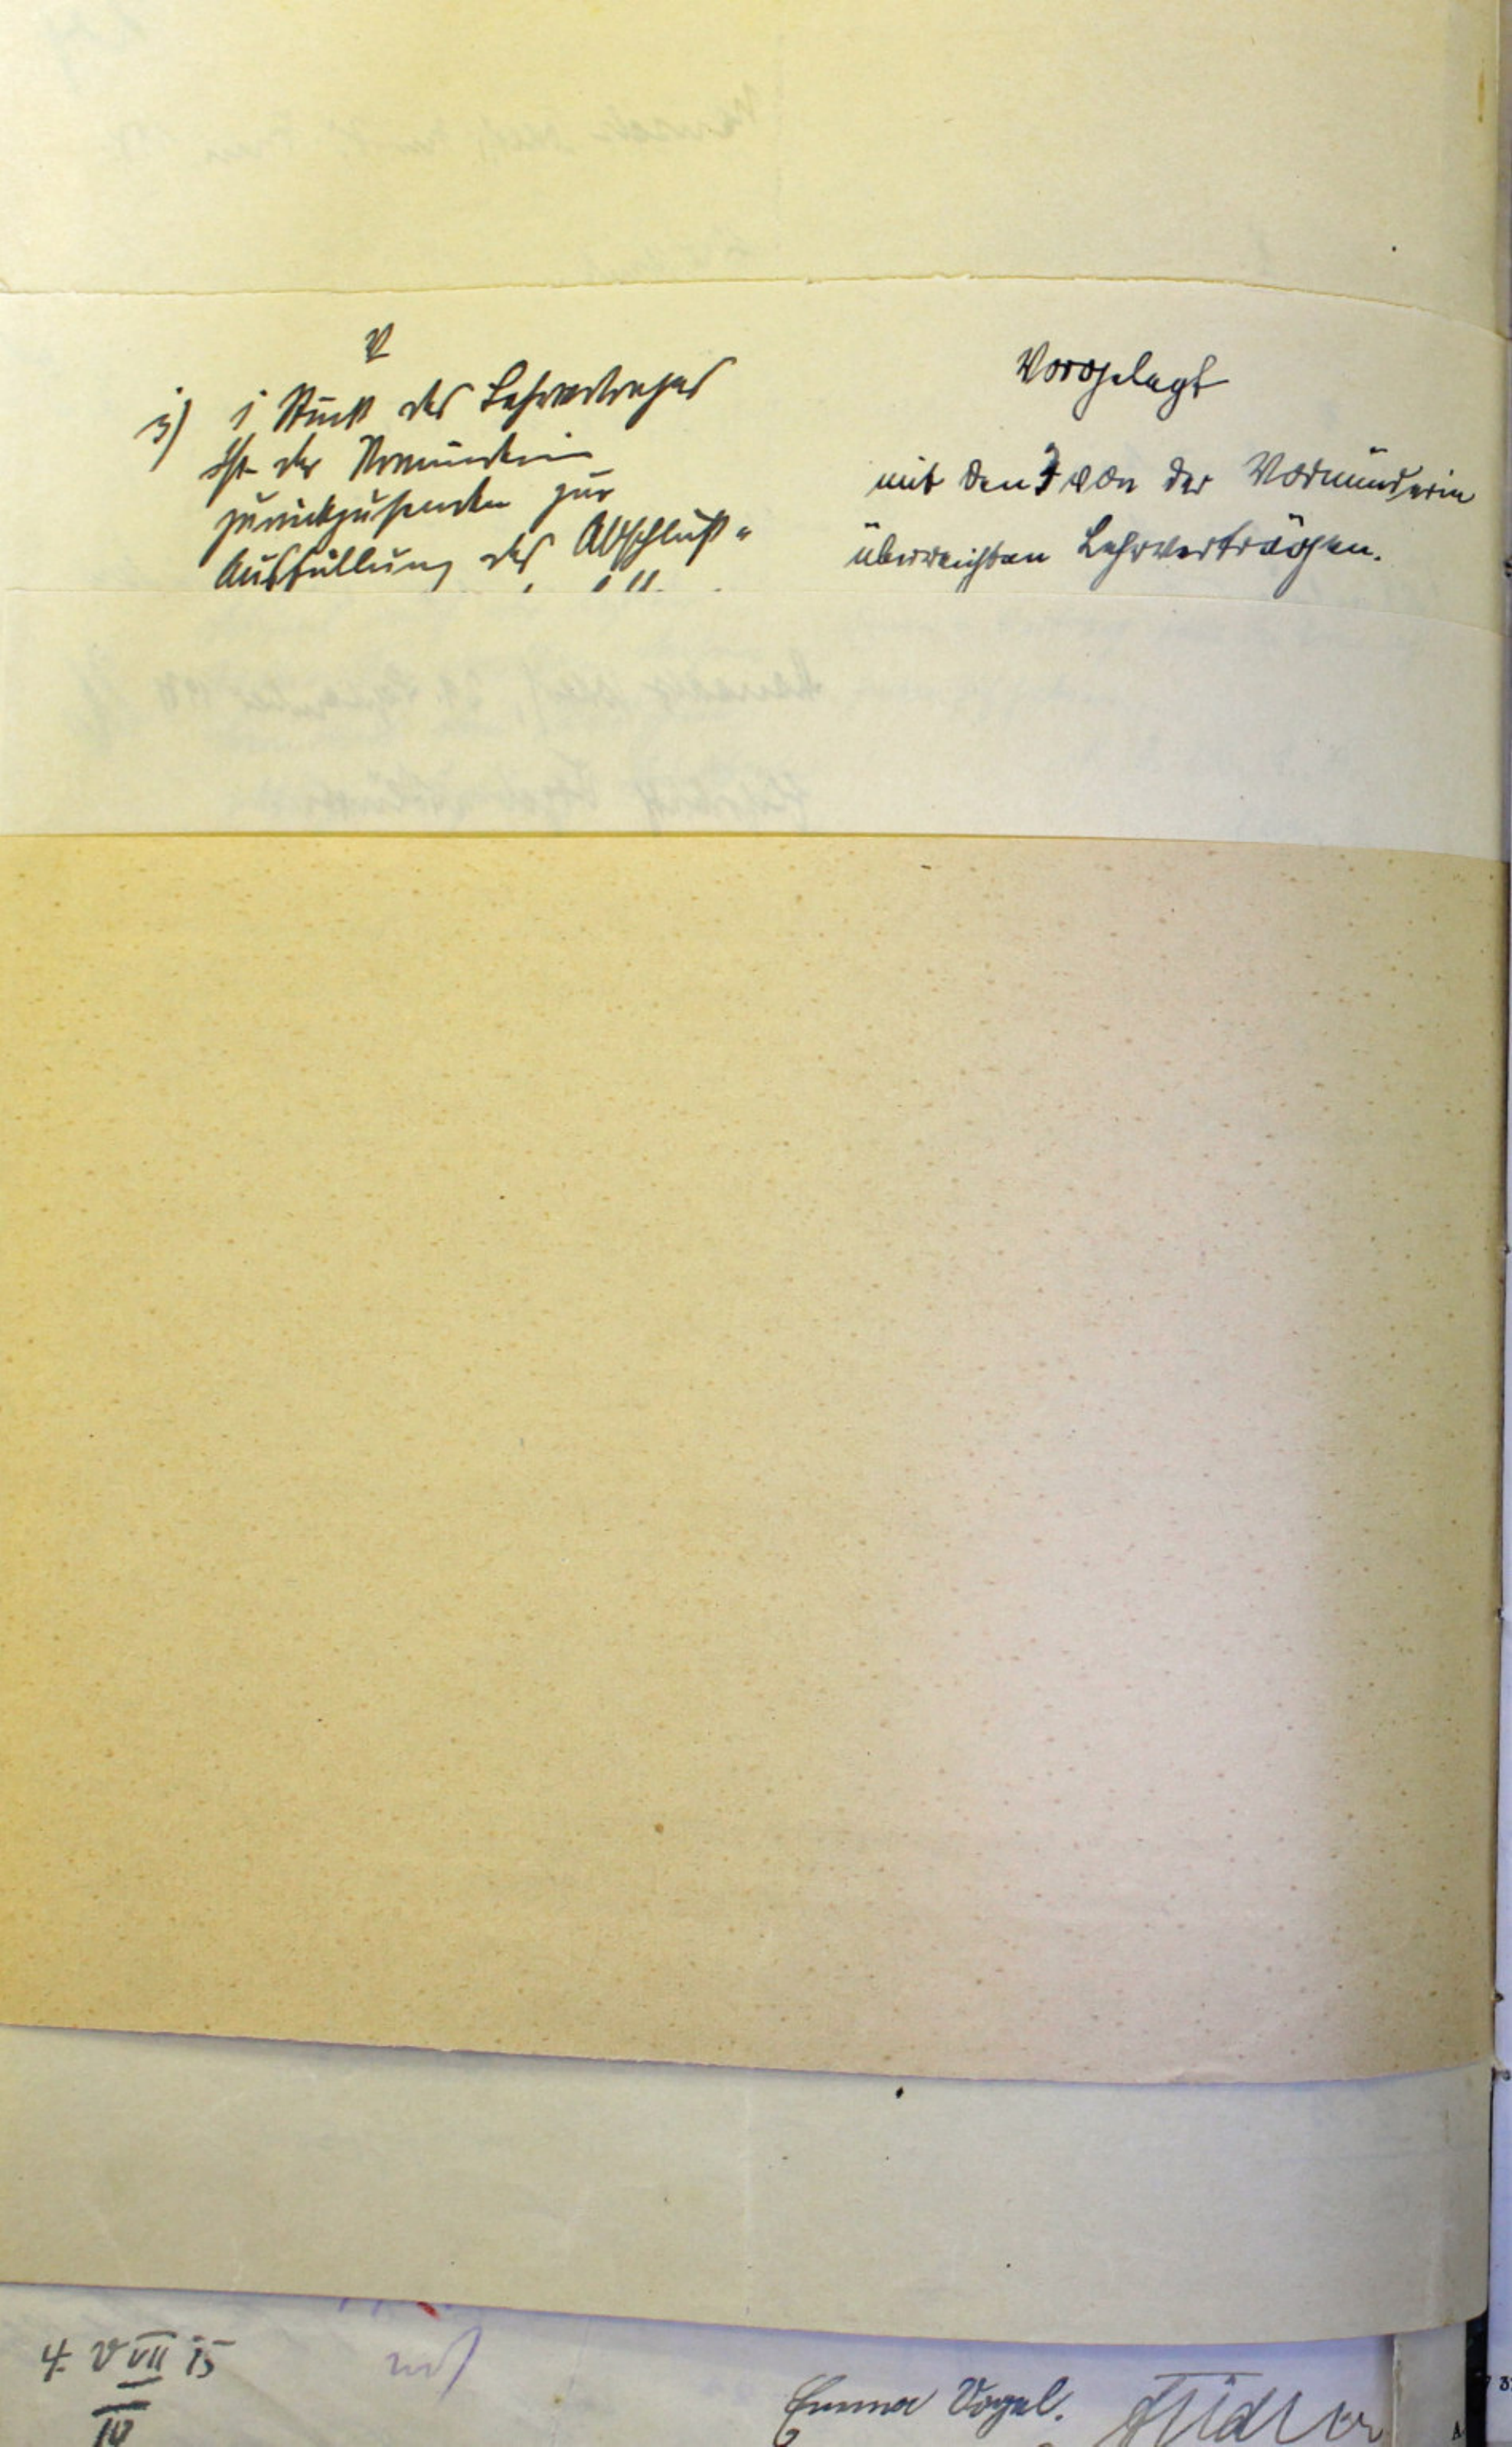 V
1) 1 Stück des Lehrvertrages
ist der Vormünderin
zurückzusenden zur
Ausfüllung des Abschluß-
Vorgelegt
mit den 3 von der Vormünderin
überreichten Lehrverträgen.
4. V VII 15
IV
Emma Vogel.